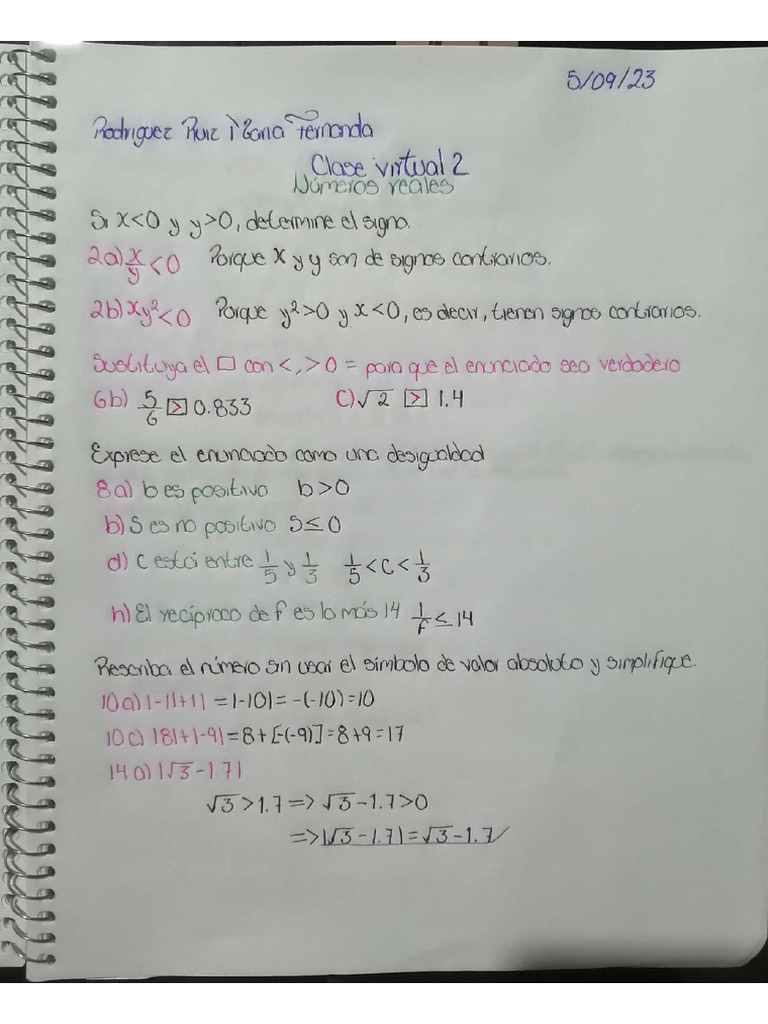 5/09/23
Rodriguez Ruiz Fernanda
Clase virtual 2
Números reales
Si x<0 y y>0, determine el signo.
2a) x/y <0 Porque x y y son de signos contrarios.
2b) xy²<0 Porque y²>0 y x<0, es decir, tienen signos contrarios.
Sustituya el □ con <, >o = para que el enunciado sea verdadero
6b) 5/6 > 0.833 C) √2 > 1.4
Exprese el enunciado como una desigualdad
8a) b es positivo b>0
b) S es no positivo S≤0
d) C está entre 1/5 y 1/3 1/5<C<1/3
h) El recíproco de f es lo más 14 1/f ≤ 14
Rescriba el número sin usar el símbolo de valor absoluto y simplifique.
10a) |-11+1| = |-10| = -(-10) = 10
10c) |8|+|-9| = 8+[-(-9)] = 8+9 = 17
14a) |√3-1.7|
√3>1.7 => √3-1.7>0
=> |√3-1.7| = √3-1.7